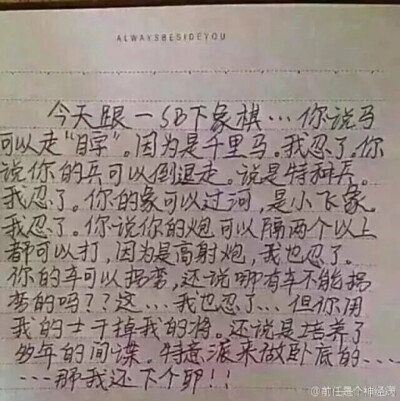 ALWAYSBESIDEYOU
今天跟一SB下象棋…你说马
可以走“目字”。因为是千里马。我忍了。你
说你的兵可以倒退走。说是特种兵。
我忍了。你的象可以过河,是小飞象。
我忍了。你说你的炮可以隔两个以上
都可以打,因为是高射炮,我也忍了。
你的车可以拐弯,还说哪有车不能拐
弯的吗??这…我也忍了…但你用
我的士干掉我的将。还说是培养了
多年的间谍。特意派来做卧底的……
……那我还下个卵!!
@前任是个神经病